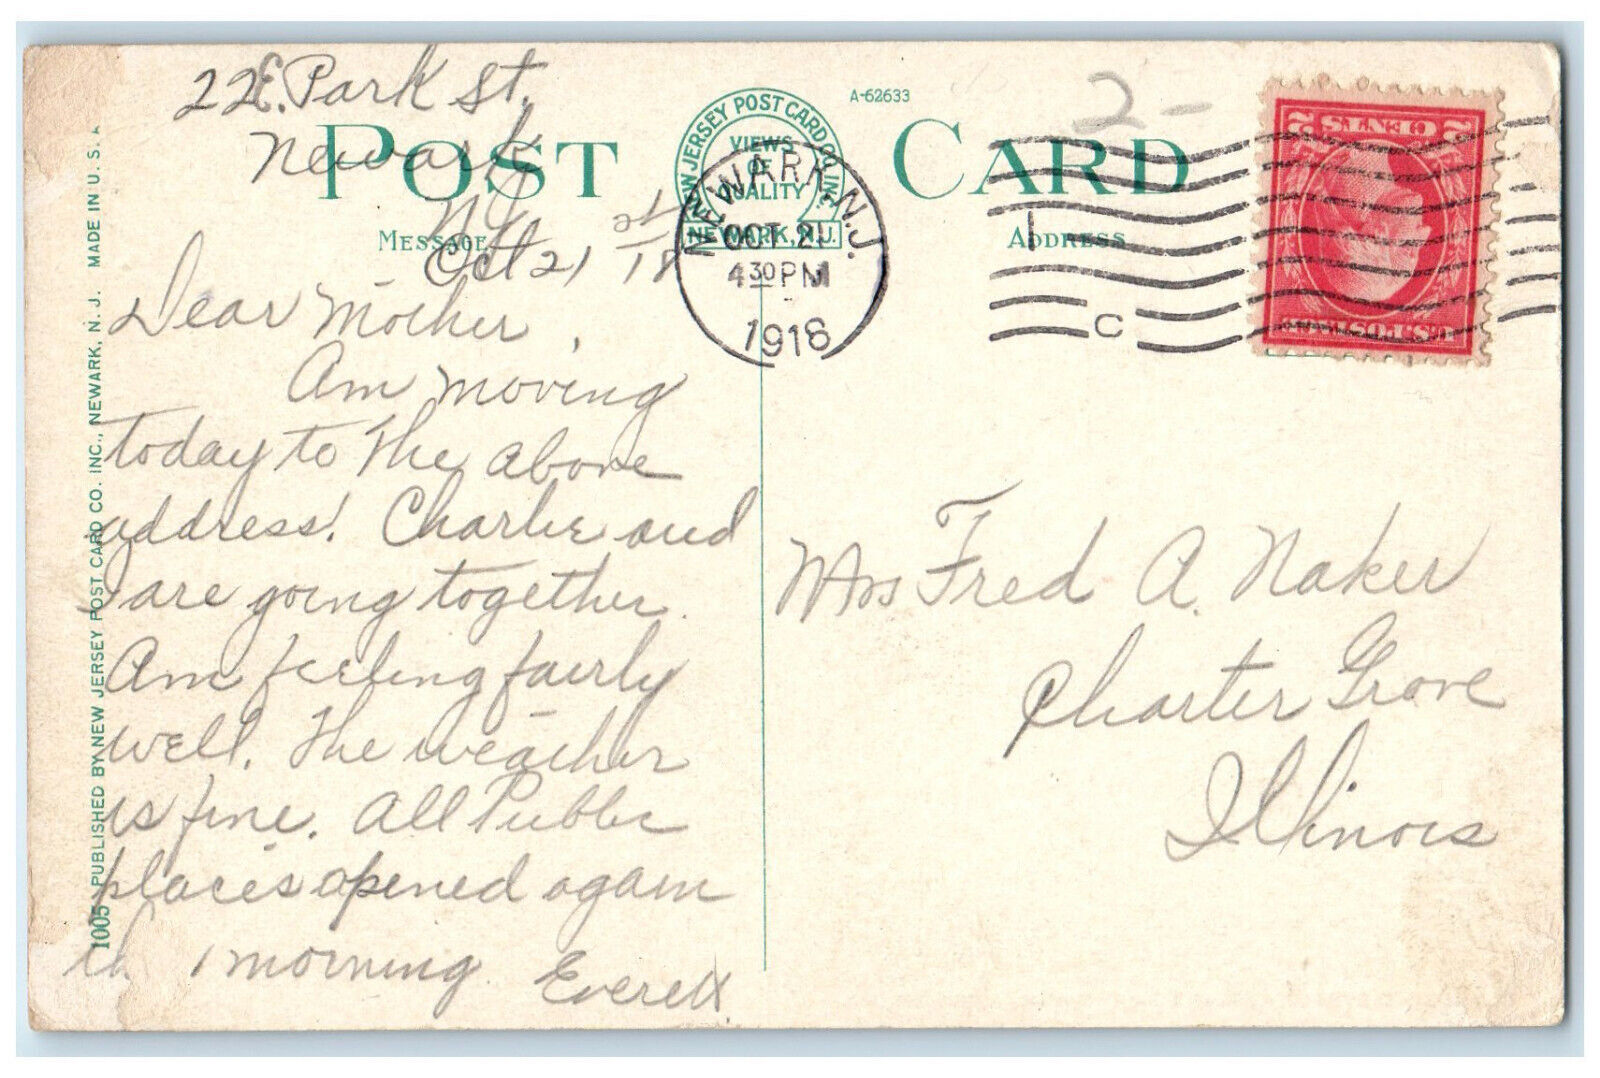 22 E. Park St.
Newark
NJ
Oct 21 18
POST CARD
NEW JERSEY POST CARD CO. INC.
VIEWS
OF
QUALITY
NEWARK, N.J.
A-62633
2-
MESSAGE
ADDRESS
NEWARK, N.J.
OCT 21
4 30 PM
1918
1
C
2 CENTS 2
U.S. POSTAGE
Dear Mother,
Am moving
today to the above
address! Charlie and
I are going together.
Am feeling fairly
well. The weather
is fine. All Public
places opened again
morning.
Everett
Mrs Fred A. Naker
Charter Grove
Illinois
1005 PUBLISHED BY NEW JERSEY POST CARD CO. INC., NEWARK, N. J. MADE IN U. S. A